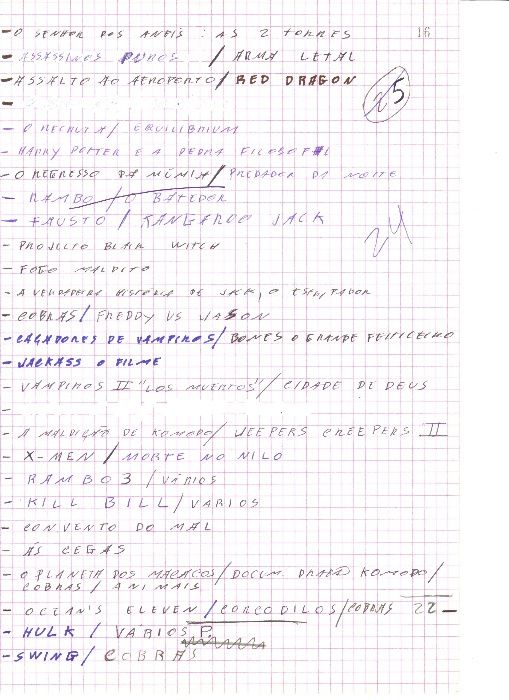 16
- O SENHOR DOS ANEIS : AS 2 TORRES
- ASSASSINOS PUROS / ARMA LETAL
- ASSALTO AO AEROPORTO / RED DRAGON
25
- O RECRUTA / EQUILIBRIUM
- HARRY POTTER E A PEDRA FILOSOFAL
- O REGRESSO DA MÚMIA / PREDADOR DA NOITE
- RAMBO / O BATEDOR
- FAUSTO / KANGAROO JACK
24
- PROJECTO BLAIR WITCH
- FOGO MALDITO
- A VERDADEIRA HISTÓRIA DE JACK, O ESTRIPADOR
- COBRAS / FREDDY VS JASON
- CAÇADORES DE VAMPIROS / BONES O GRANDE FEITICEIRO
- JACKASS O FILME
- VAMPIROS II "LOS MUERTOS" / CIDADE DE DEUS
-
- A MALDIÇÃO DE KOMODO / JEEPERS CREEPERS II
- X-MEN / MORTE NO NILO
- RAMBO 3 / VÁRIOS
- KILL BILL / VARIOS
- CONVENTO DO MAL
- ÀS CEGAS
- O PLANETA DOS MACACOS / DOCUM. DRAGÃO KOMODO /
COBRAS / ANIMAIS
- OCEAN'S ELEVEN / CORCODILOS / COBRAS 22 -
- HULK / VÁRIOS P.
- SWING / COBRAS